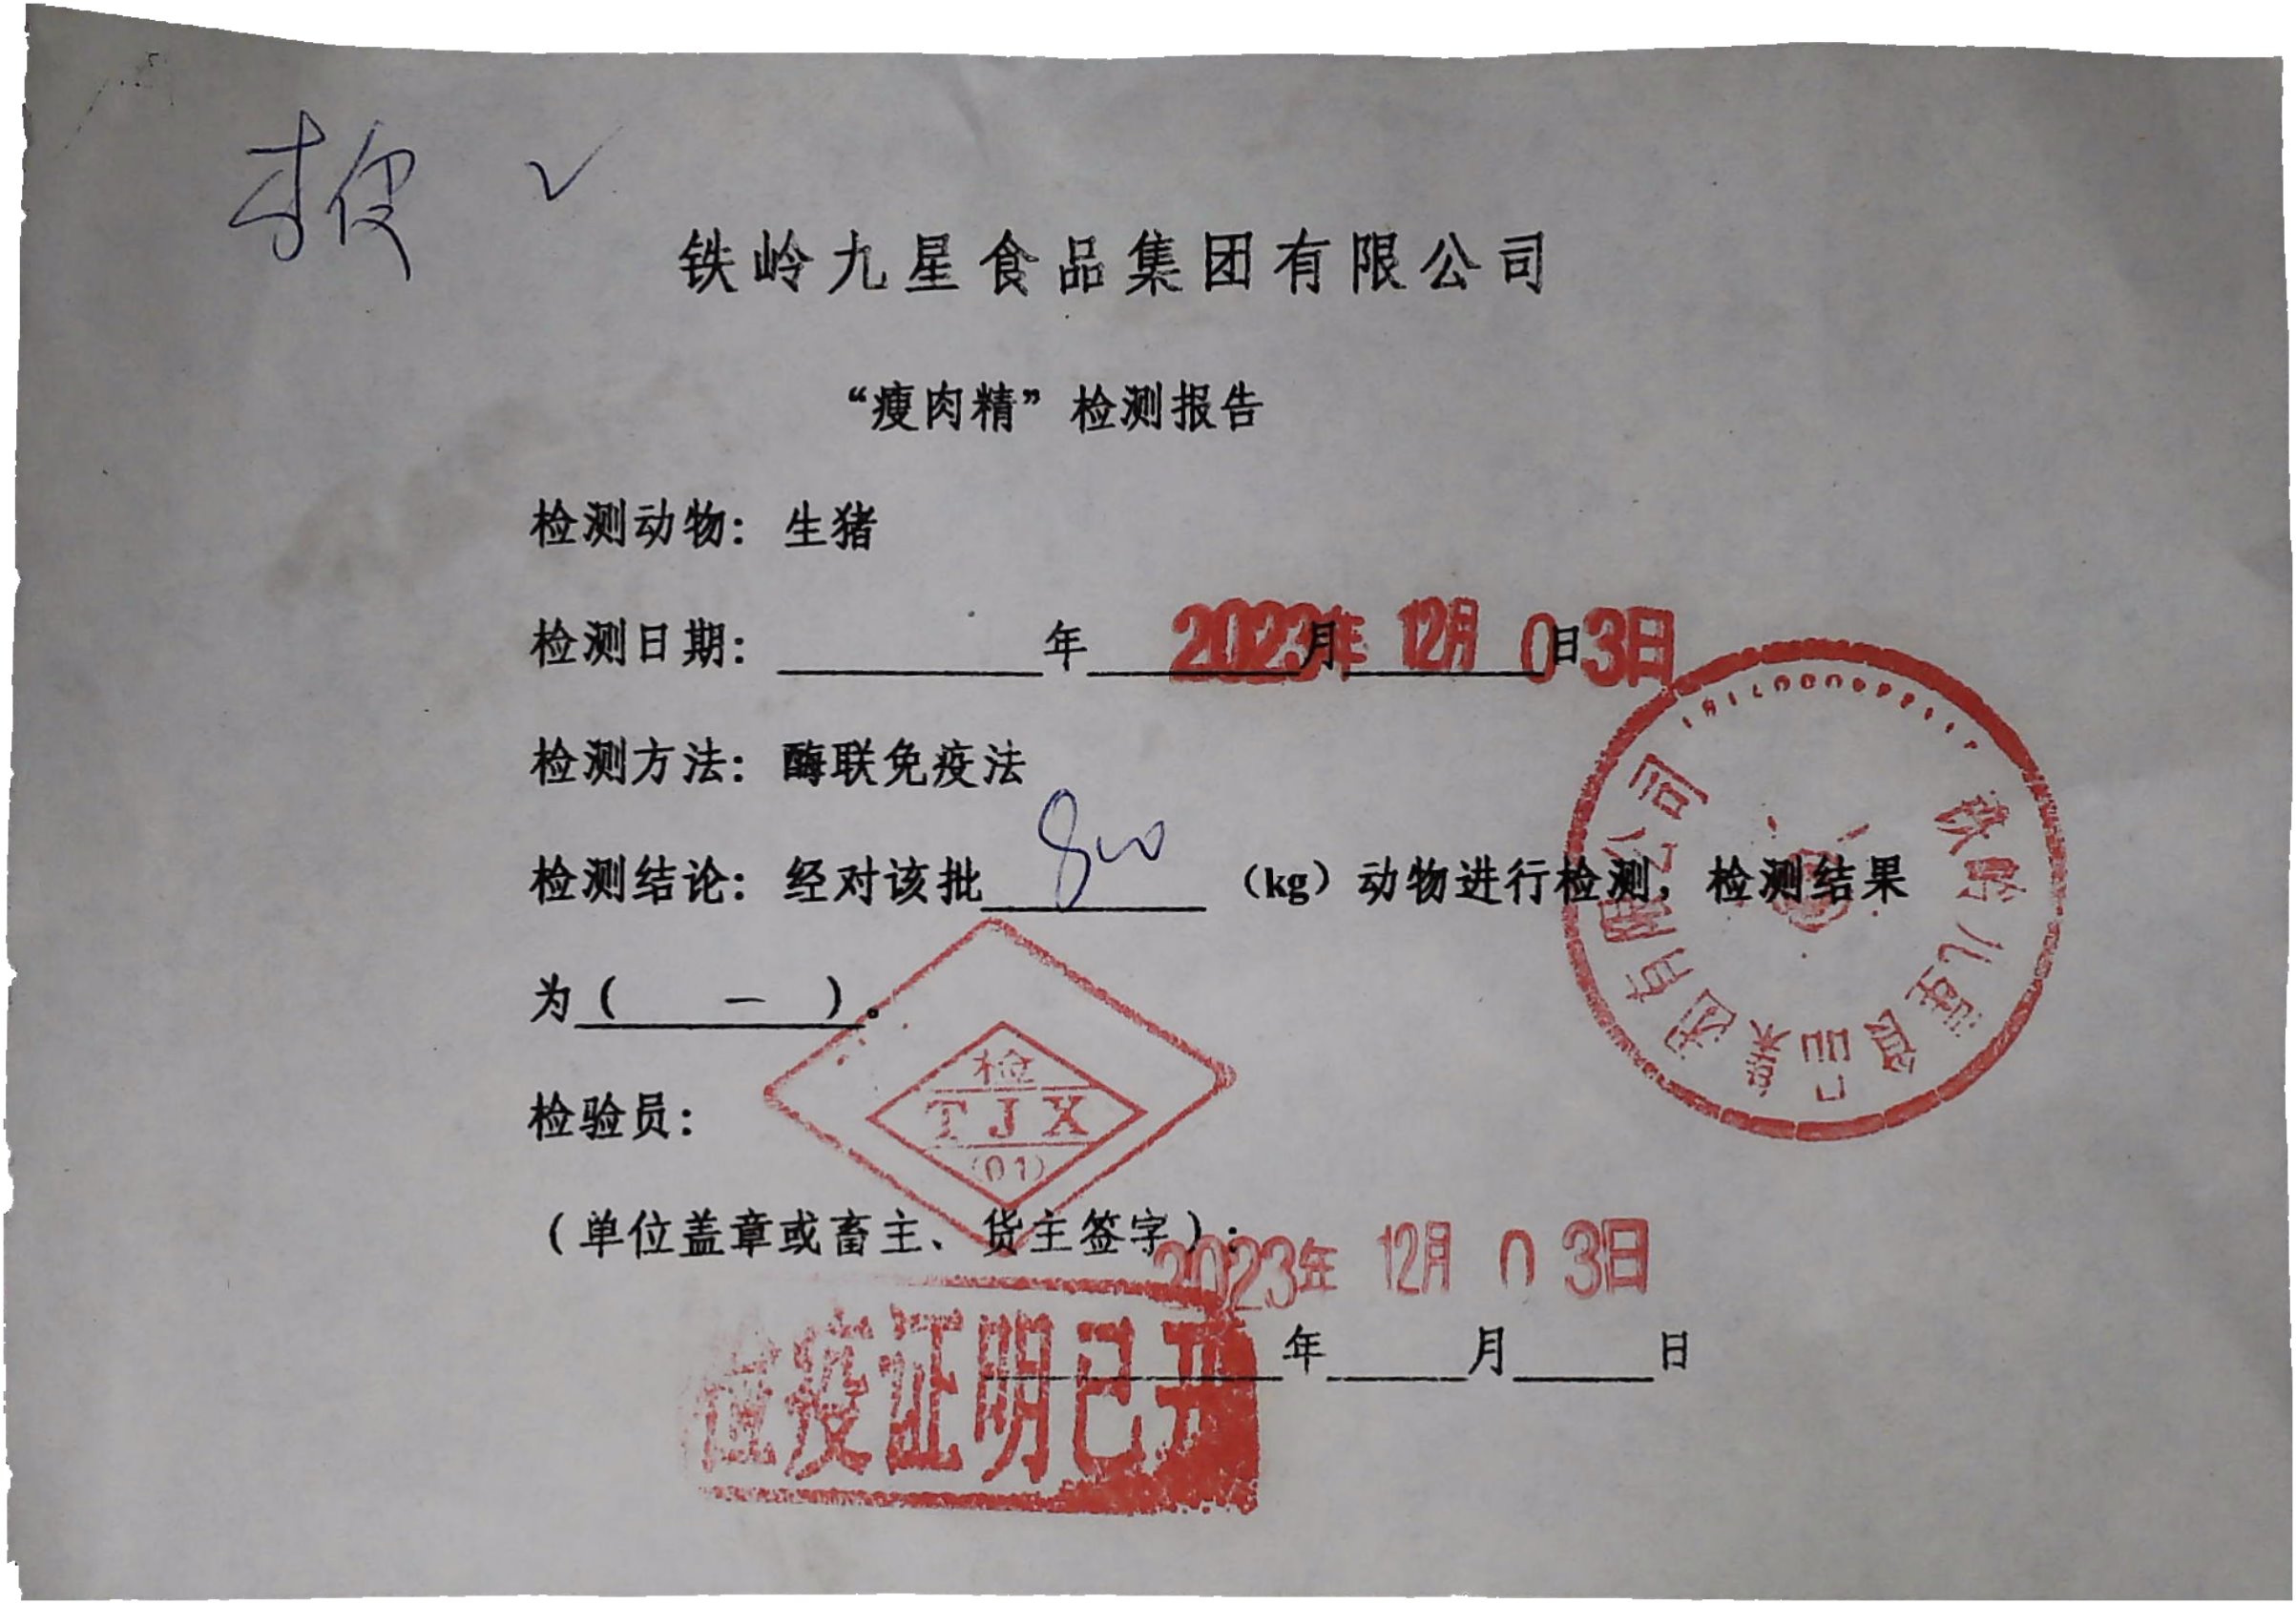 ✓
铁岭九星食品集团有限公司
“瘦肉精”检测报告
检测动物：生猪
检测日期：______年______月______日
2023年 12月 03日
检测方法：酶联免疫法
检测结论：经对该批 800 （kg）动物进行检测，检测结果
为（ — ）。
检验员：
检
TJX
(01)
铁岭九星食品集团有限公司
（单位盖章或畜主、货主签字）：
2023年 12月 03日
______年______月______日
检疫证明已开